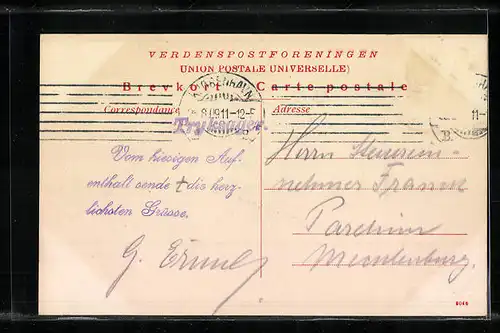 VERDENSPOSTFORENINGEN
UNION POSTALE UNIVERSELLE)
Brevkort Carte postale
Correspondance
Adresse
KJØBENHAVN
8.09 11-12
11-
B.
Tryksager.
Vom hiesigen Auf-
enthalt sende + die herz-
lichsten Grüsse.
Herrn Steuerein-
nehmer Framm
Parchim
Mecklenburg.